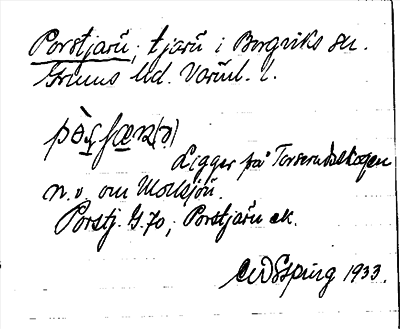 Porstjärn, tjärn i Borgviks sn.
Grums hd. Värml. l.
Ligger på Torserudsskogen
n.v. om Mollsjön.
Porstj. G.70; Porstjärn ek.
1933.